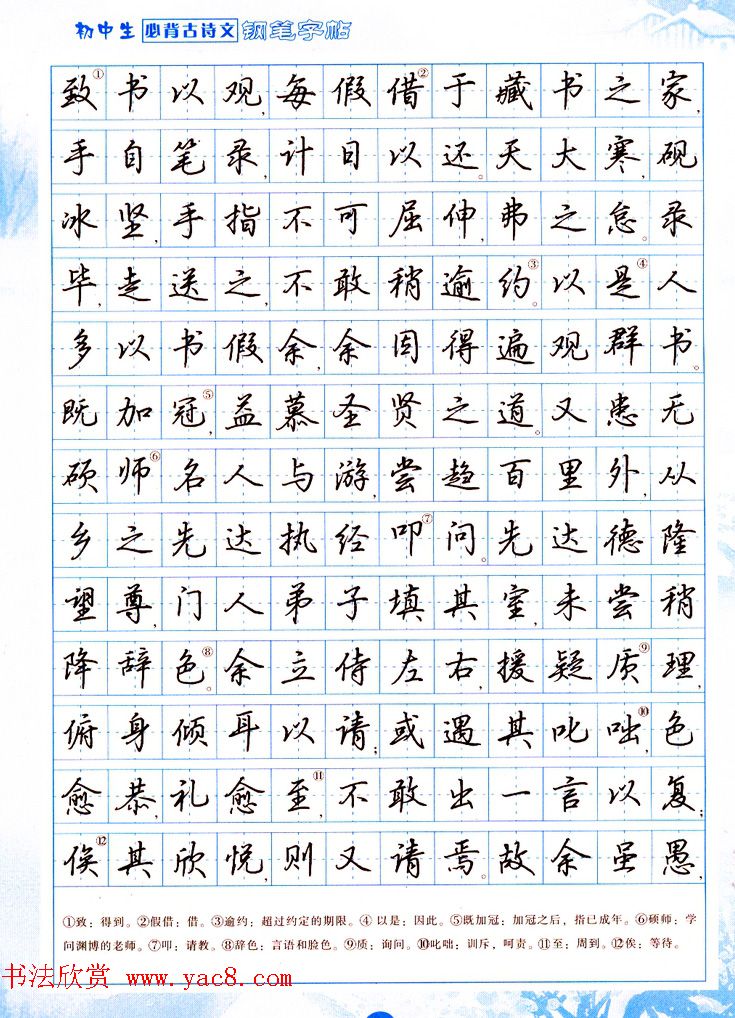 初中生 必背古诗文 钢笔字帖
致①书以观,每假借②于藏书之家,
手自笔录,计日以还。天大寒,砚
冰坚,手指不可屈伸,弗之怠。录
毕,走送之,不敢稍逾约③。以是④人
多以书假余,余因得遍观群书。
既加冠⑤,益慕圣贤之道。又患无
硕师⑥名人与游,尝趋百里外,从
乡之先达执经叩⑦问。先达德隆
望尊,门人弟子填其室,未尝稍
降辞色⑧。余立侍左右,援疑质⑨理,
俯身倾耳以请;或遇其叱咄⑩,色
愈恭,礼愈至⑪,不敢出一言以复;
俟⑫其欣悦,则又请焉。故余虽愚,
①致:得到。②假借:借。③逾约:超过约定的期限。④以是:因此。⑤既加冠:加冠之后,指已成年。⑥硕师:学
问渊博的老师。⑦叩:请教。⑧辞色:言语和脸色。⑨质:询问。⑩叱咄:训斥,呵责。⑪至:周到。⑫俟:等待。
书法欣赏 www.yac8.com